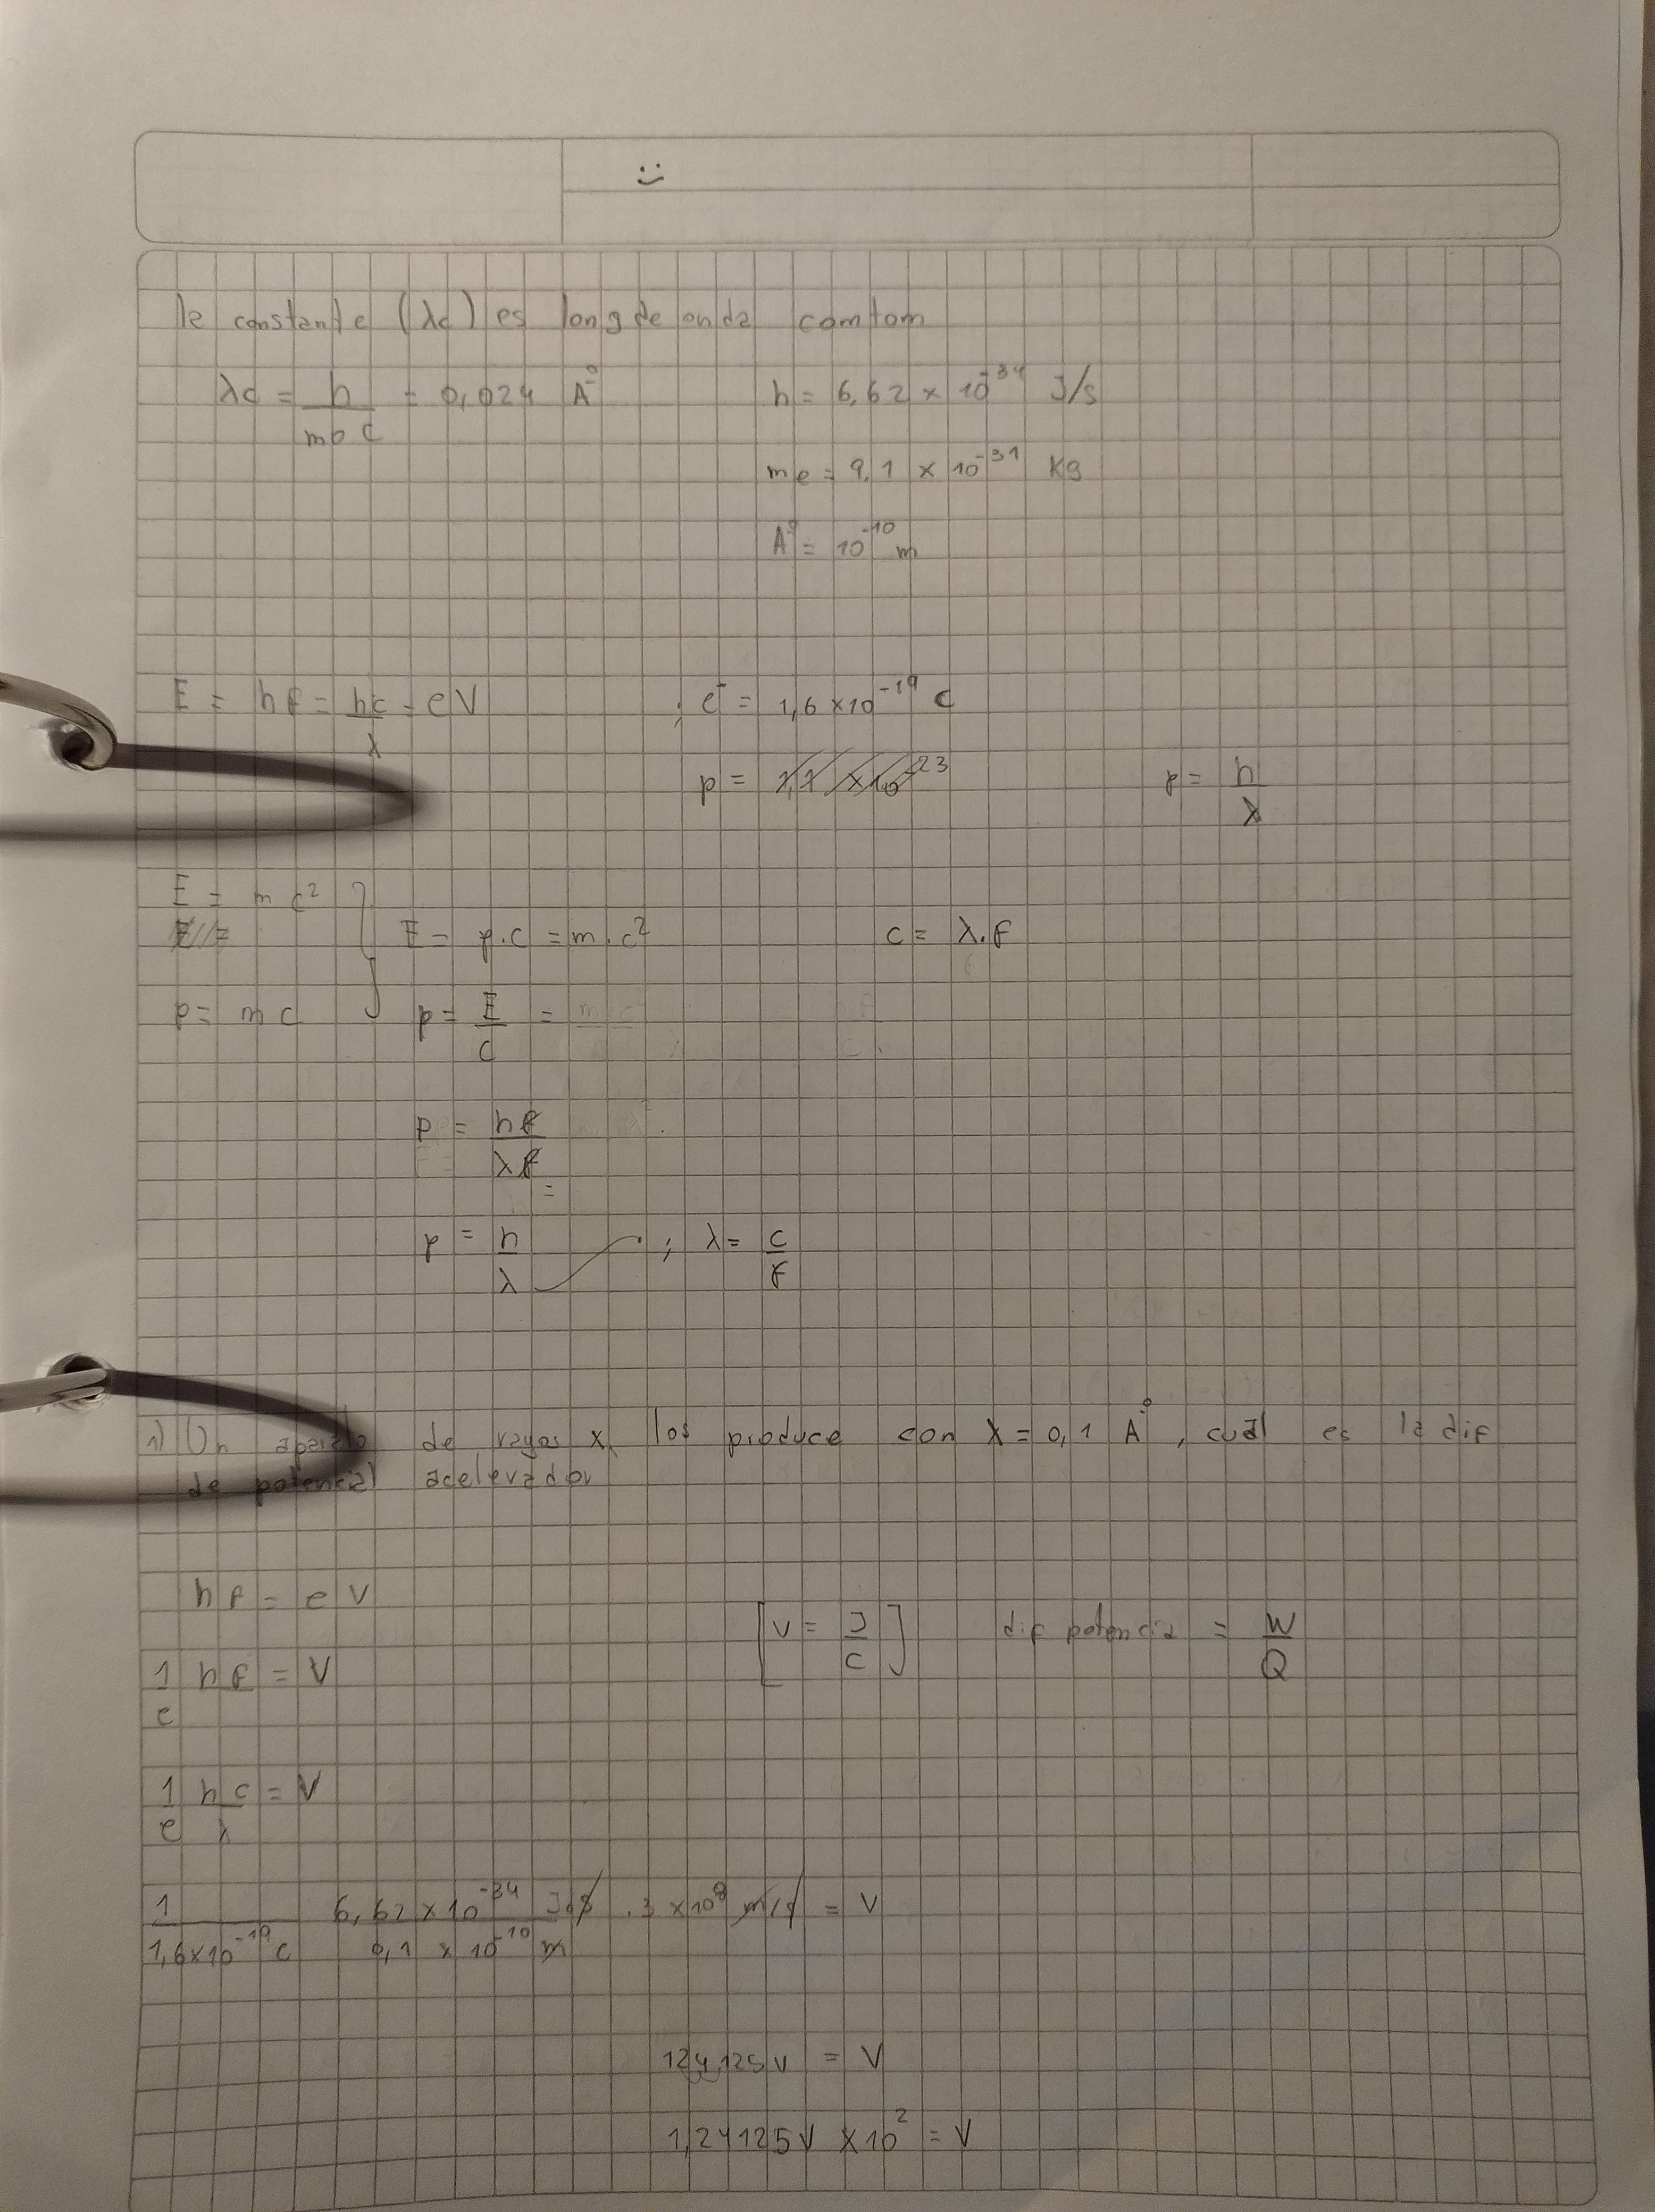 :)
la constante (λc) es long de onda comtom
λc = h / mo c = 0,024 A°
h = 6,62 × 10⁻³⁴ J/s
me = 9,1 × 10⁻³¹ Kg
A° = 10⁻¹⁰ m
E = hf = hc / λ = eV ; e⁻ = 1,6 × 10⁻¹⁹ C
p = 1,1 × 10⁻²³
p = h / λ
E = m c²
E = p.c = m.c²
c = λ.f
p = m c
p = E / c =
p = hf / λf
=
p = h / λ ; λ = c / f
1) Un aparato de rayos x, los produce con λ = 0,1 A°, cual es la dif
de potencial acelerador
hf = eV
[V = J / C] dif potencia = W / Q
1 / e hf = V
1 / e hc / λ = V
1 / 1,6×10⁻¹⁹ C 6,62 × 10⁻³⁴ J.s . 3 × 10⁸ m/s / 0,1 × 10⁻¹⁰ m = V
124,125 V = V
1,24125 V × 10² = V